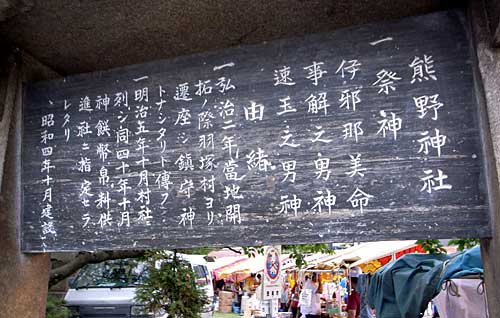 熊野神社
一祭神
伊邪那美命
事解之男神
速玉之男神
由緒
一弘治二年當地開
拓ノ際羽塚村ヨリ
遷座シ鎮守ノ神
トナシタリト傳フ
一明治五年十月村社ニ
列シ同四十年十月
神饌幣帛料供
進社ニ指定セラ
レタリ
昭和四年十月建設